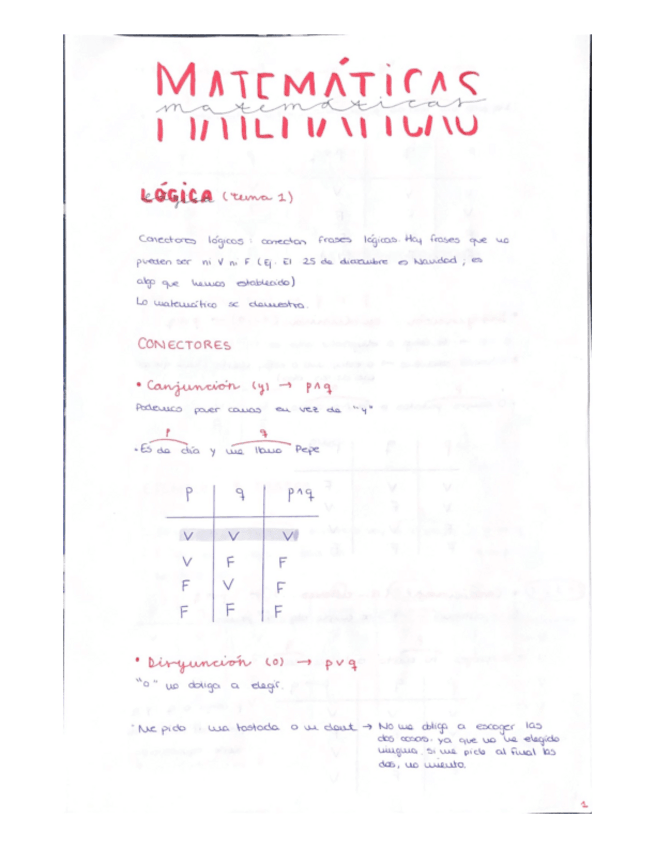 MATEMÁTICAS
matemáticas
LÓGICA (tema 1)
Conectores lógicos: conectan frases lógicas. Hay frases que no
pueden ser ni V ni F (Ej. El 25 de diciembre es Navidad, es
algo que hemos establecido)
Lo matemático se demuestra.
CONECTORES
• Conjunción (y) → p∧q
Podemos poner comas en vez de "y"
p q
• Es de día y me llamo Pepe
p q p∧q
V V V
V F F
F V F
F F F
• Disyunción (o) → p∨q
"o" no obliga a elegir.
• Me pido una tostada o un → No me obliga a escoger las
dos cosas ya que no he elegido
ninguna, si me pido al final las
dos, no miento.
1